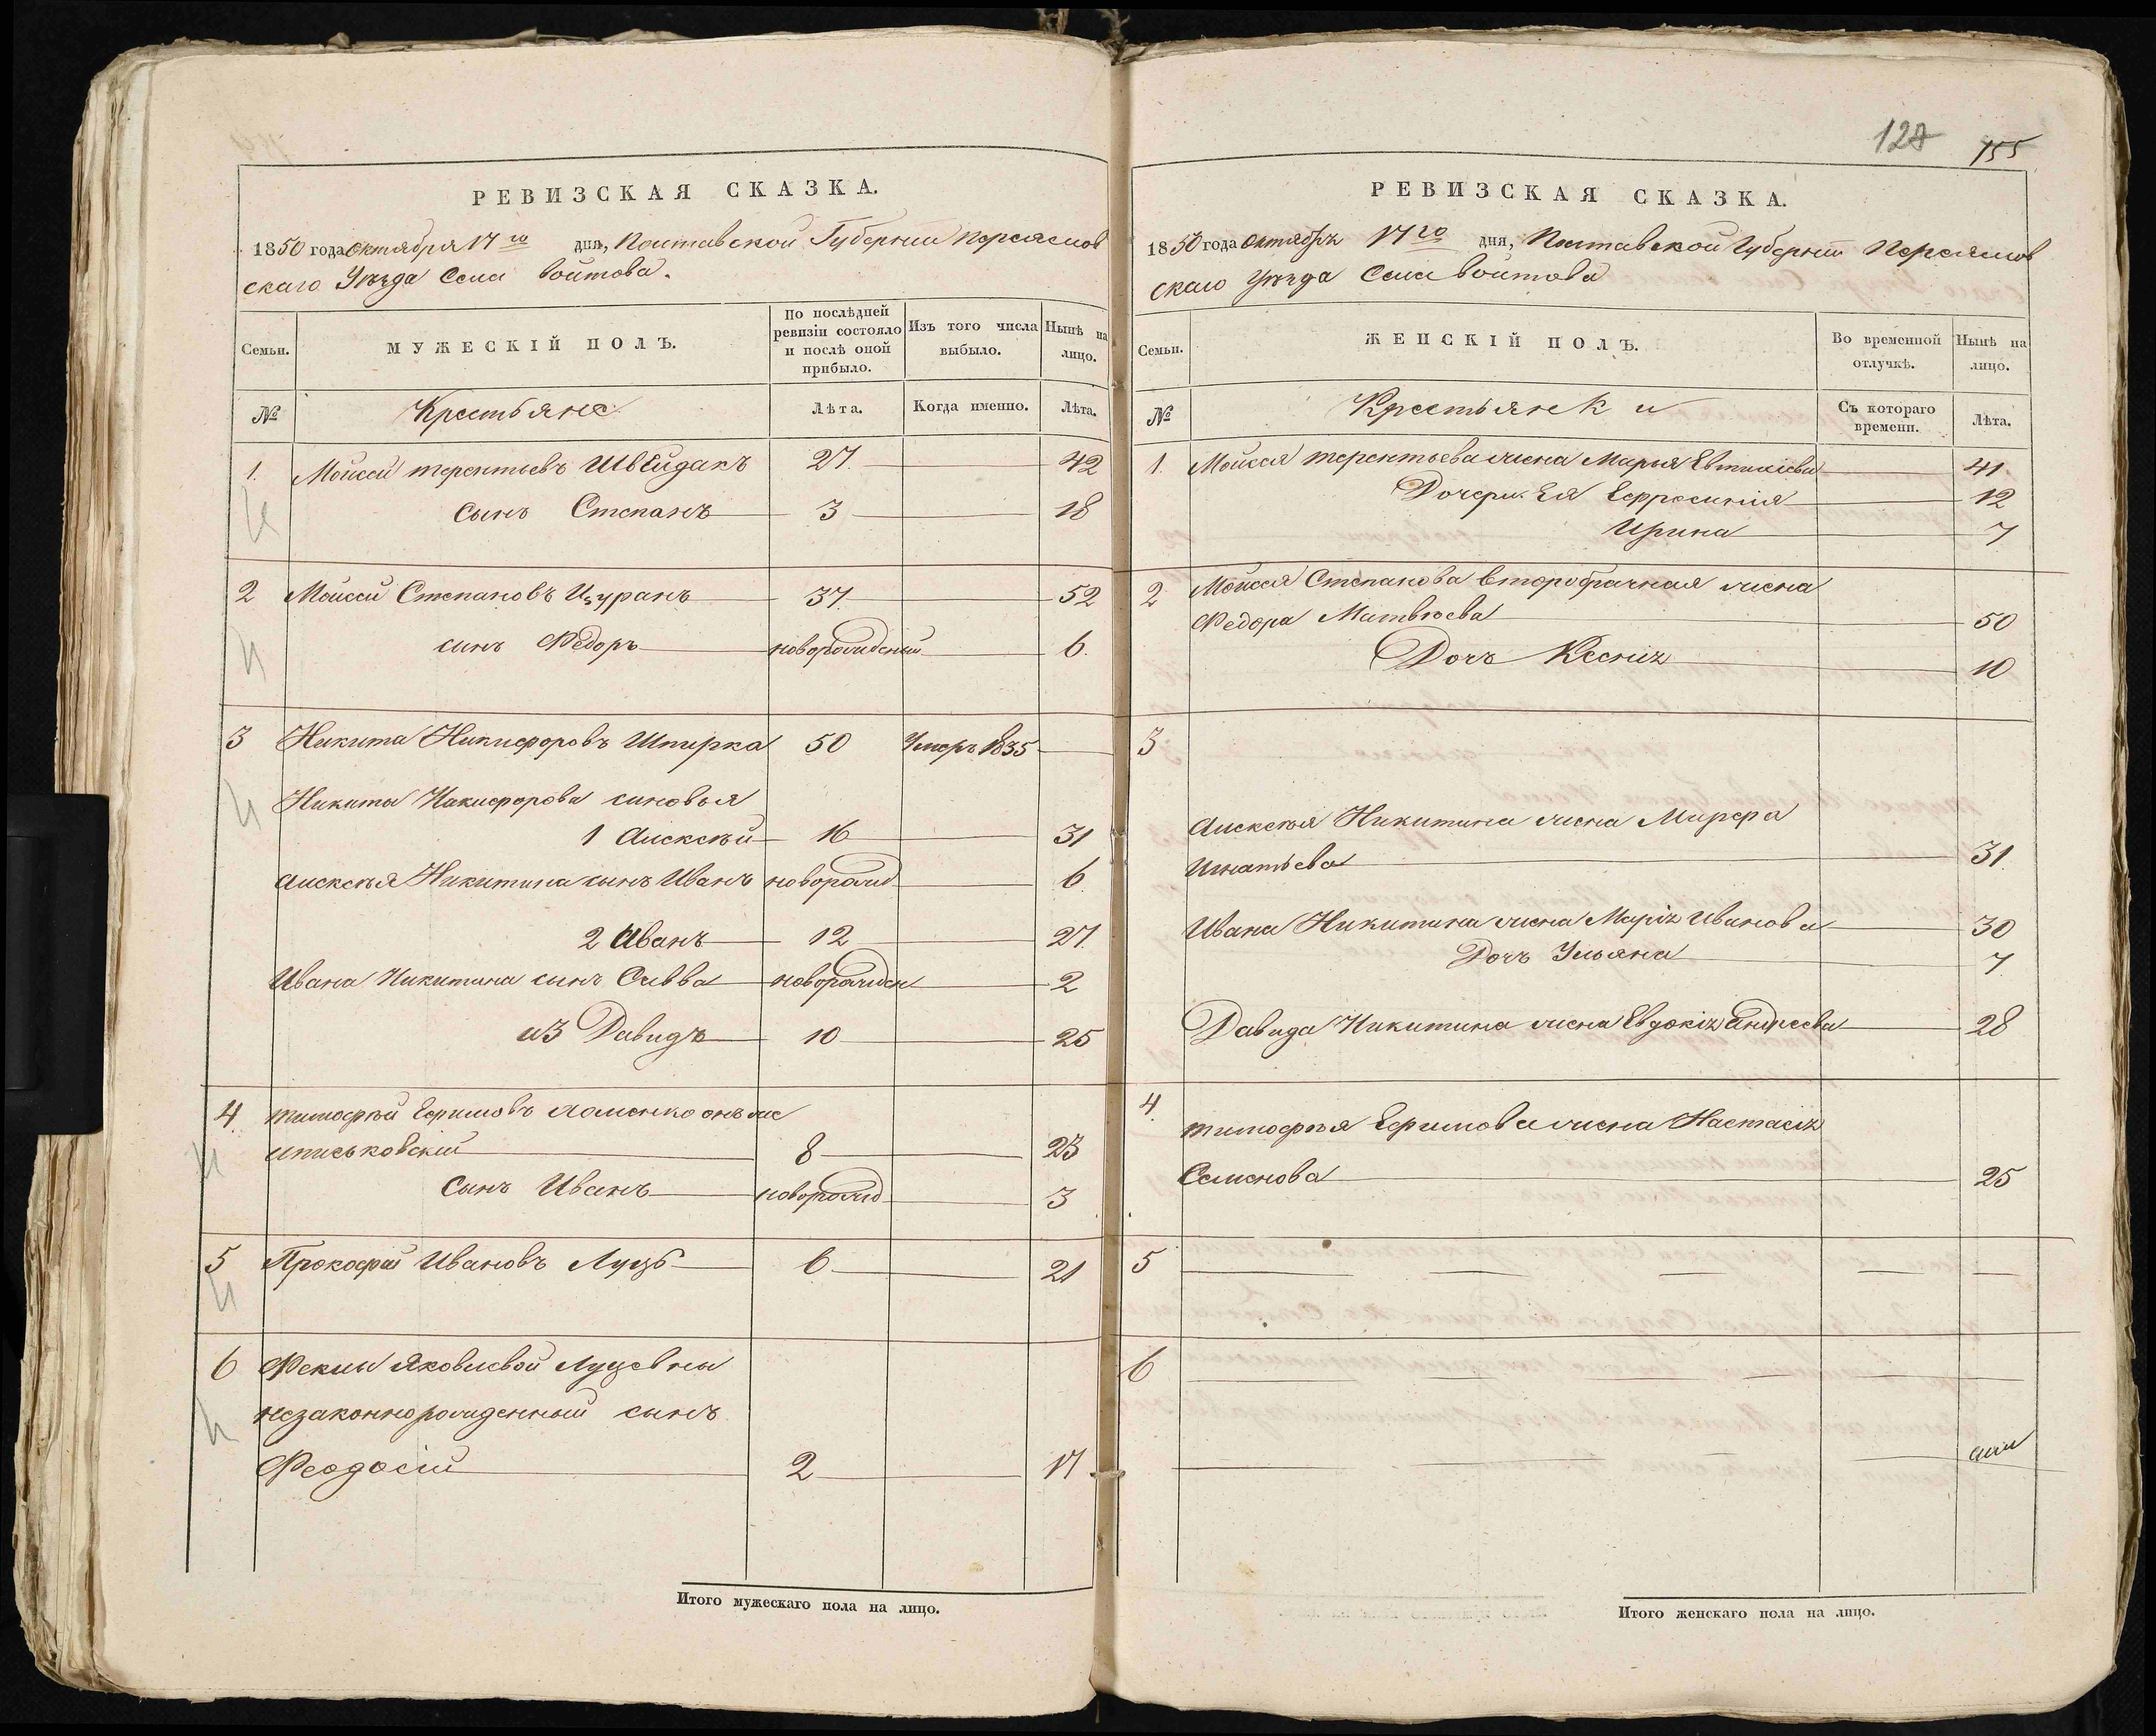 РЕВИЗСКАЯ СКАЗКА.
1850 года Октября 17го дня, Полтавской Губернии Переяслов
скаго Уѣзда Села Войтова.
Семьи.
МУЖЕСКІЙ ПОЛЪ.
По послѣдней ревизіи состояло и послѣ оной прибыло.
Изъ того числа выбыло.
Нынѣ на лицо.
№
Крестьяне
Лѣта.
Когда именно.
Лѣта.
1. Мойсей Терентьевъ Швейдакъ 27 42
сынъ Степанъ 3 18
2 Мойсей Степановъ Цуранъ 37 52
сынъ Федоръ новорожденый 6
3 Никита Никифоровъ Шпирка 50 Умеръ 1835
Никиты Никифорова сыновья
1 Алексѣй 16 31
Алексѣя Никитина сынъ Иванъ новорожд 6
2 Иванъ 12 27
Ивана Никитина сынъ Савва новорожден 2
3 Давидъ 10 25
4 Тимофѣй Ефимовъ онъ же
8 23
Сынъ Иванъ новорожд 3
5 Прокофій Ивановъ Луцъ 6 21
6 Феклы Яковлевой Луцевны
незаконнорожденный сынъ
Феодосій 2 17
Итого мужескаго пола на лицо.
128 155
РЕВИЗСКАЯ СКАЗКА.
1850 года Октября 17го дня, Полтавской Губерніи Переяслов
скаго Уѣзда Села Войтова
Семьи.
ЖЕНСКІЙ ПОЛЪ.
Во временной отлучкѣ.
Нынѣ на лицо.
№
Крестьянки
Съ котораго времени.
Лѣта.
1. Мойсея Терентьева жена Марья Евтихіева 41
Дочери Ея Ефросинія 12
Ирина 7
2 Мойсея Степанова второбрачная жена
Федора Матвѣева 50
Дочь Ксенія 10
3
Алексѣя Никитина жена Марфа
Игнатьева 31
Ивана Никитина жена Марія Иванова 30
Дочь Ульяна 7
Давида Никитина жена Евдокія Андреева 28
4 Тимофѣя Ефимова жена Настасія
Семенова 25
5
6
Итого женскаго пола на лицо.